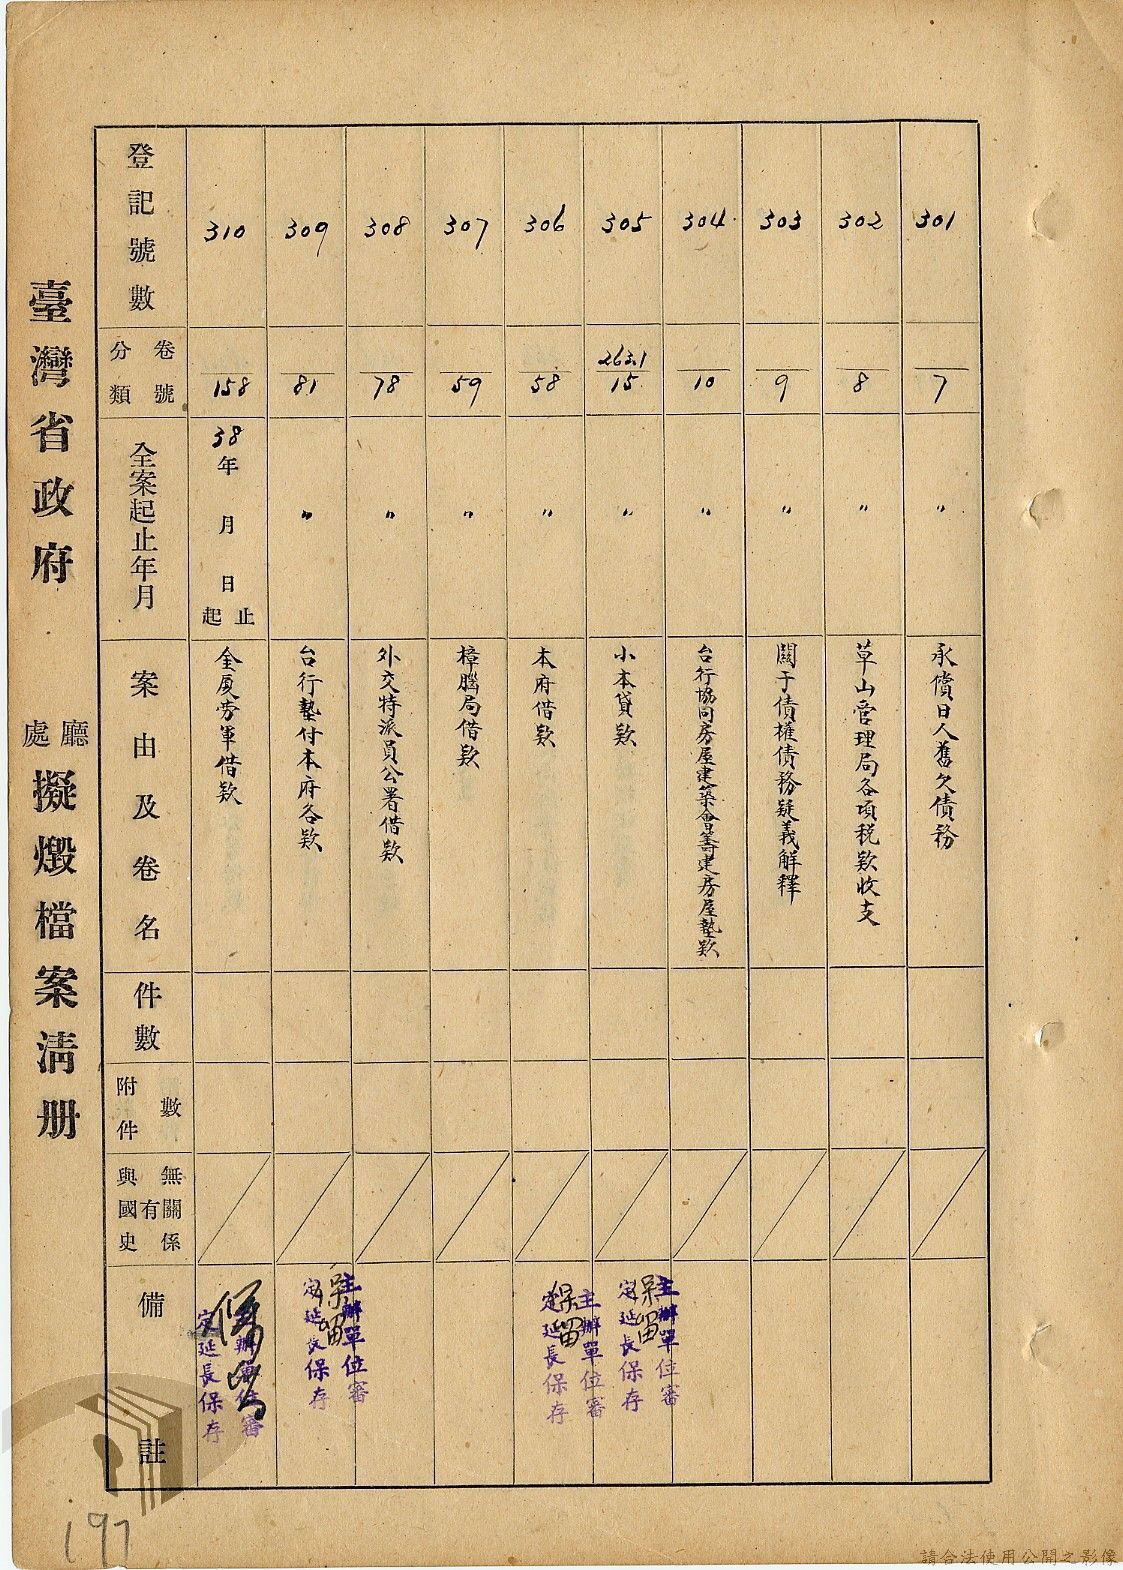 臺灣省政府 廳處 擬燬檔案清册
登記號數
分類
卷號
全案起止年月
案由及卷名
件數
附件
數
與國史
有
無關係
備註
310
158
38年 月 日
起 止
金厦劳軍借欵
主辦單位審
定延長保存
保留
309
81
〃
台行墊付本府各欵
主辦單位審
定延長保存
保留
308
78
〃
外交特派員公署借欵
307
59
〃
樟腦局借欵
306
58
〃
本府借欵
主辦單位審
定延長保存
保留
305
263.1
15
〃
小本貸欵
主辦單位審
定延長保存
保留
304
10
〃
台行協同房屋建築會籌建房屋墊欵
303
9
〃
關于債權債務疑義解釋
302
8
〃
草山管理局各項稅欵收支
301
7
〃
永償日人舊欠債務
197
請合法使用公開之影像